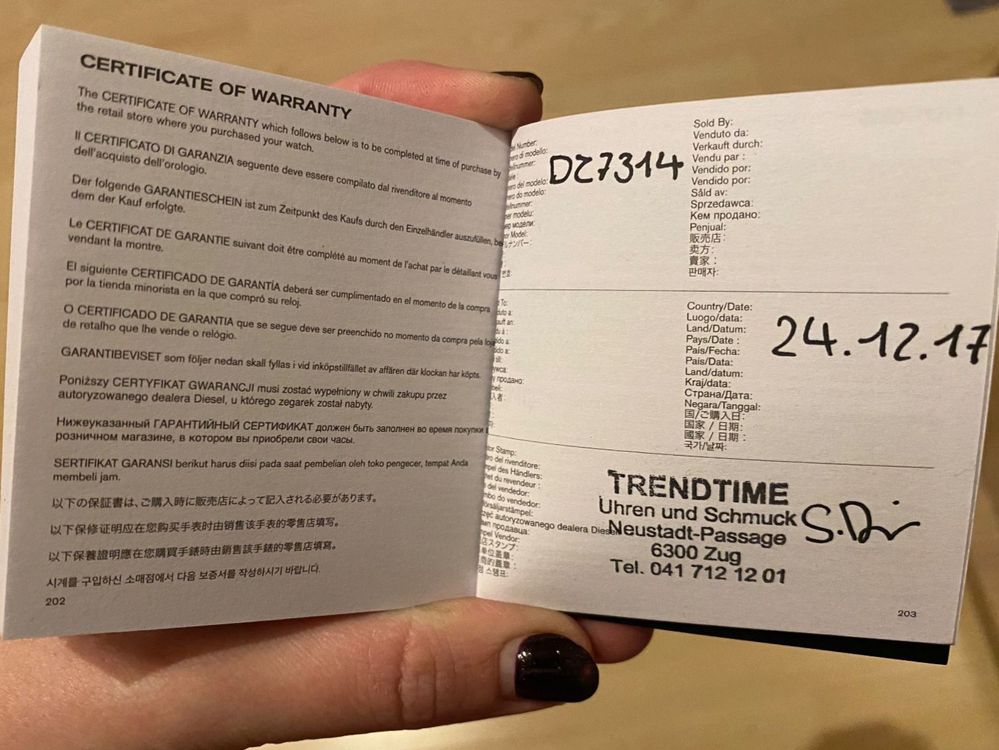 CERTIFICATE OF WARRANTY
The CERTIFICATE OF WARRANTY which follows below is to be completed at time of purchase by
the retail store where you purchased your watch.
Il CERTIFICATO DI GARANZIA seguente deve essere compilato dal rivenditore al momento
dell'acquisto dell'orologio.
Der folgende GARANTIESCHEIN ist zum Zeitpunkt des Kaufs durch den Einzelhändler auszufüllen, bei
dem der Kauf erfolgte.
Le CERTIFICAT DE GARANTIE suivant doit être complété au moment de l'achat par le détaillant vous
vendant la montre.
El siguiente CERTIFICADO DE GARANTÍA deberá ser cumplimentado en el momento de la compra
por la tienda minorista en la que compró su reloj.
O CERTIFICADO DE GARANTIA que se segue deve ser preenchido no momento da compra pela
de retalho que lhe vende o relógio.
GARANTIBEVISET som följer nedan skall fyllas i vid inköpstillfället av affären där klockan har köpts.
Poniższy CERTYFIKAT GWARANCJI musi zostać wypełniony w chwili zakupu przez
autoryzowanego dealera Diesel, u którego zegarek został nabyty.
Нижеуказанный ГАРАНТИЙНЫЙ СЕРТИФИКАТ должен быть заполнен во время покупки в
розничном магазине, в котором вы приобрели свои часы.
SERTIFIKAT GARANSI berikut harus diisi pada saat pembelian oleh toko pengecer, tempat Anda
membeli jam.
以下の保証書は、ご購入時に販売店によって記入される必要があります。
以下保修证明应在您购买手表时由销售该手表的零售店填写。
以下保養證明應在您購買手錶時由銷售該手錶的零售店填寫。
시계를 구입하신 소매점에서 다음 보증서를 작성하시기 바랍니다.
202
Number:
di modello:
DZ7314
del modelo:
do modelo:
modelu:
модели:
Model:
Sold By:
Venduto da:
Verkauft durch:
Vendu par :
Vendido por:
Vendido por:
Såld av:
Sprzedawca:
Кем продано:
Penjual:
販売店:
卖方:
賣家:
판매자:
To:
Country/Date:
Luogo/data:
Land/Datum:
Pays/Date :
País/Fecha:
País/Data:
Land/datum:
Kraj/data:
Страна/Дата:
Negara/Tanggal:
国/ご購入日:
国家 / 日期:
國家 / 日期:
국가/날짜:
24.12.17
Stamp:
del rivenditore:
des Händlers:
du revendeur :
del vendedor:
do vendedor:
autoryzowanego dealera Diesel
продавца:
Vendor:
TRENDTIME
Uhren und Schmuck
Neustadt-Passage
6300 Zug
Tel. 041 712 12 01
203